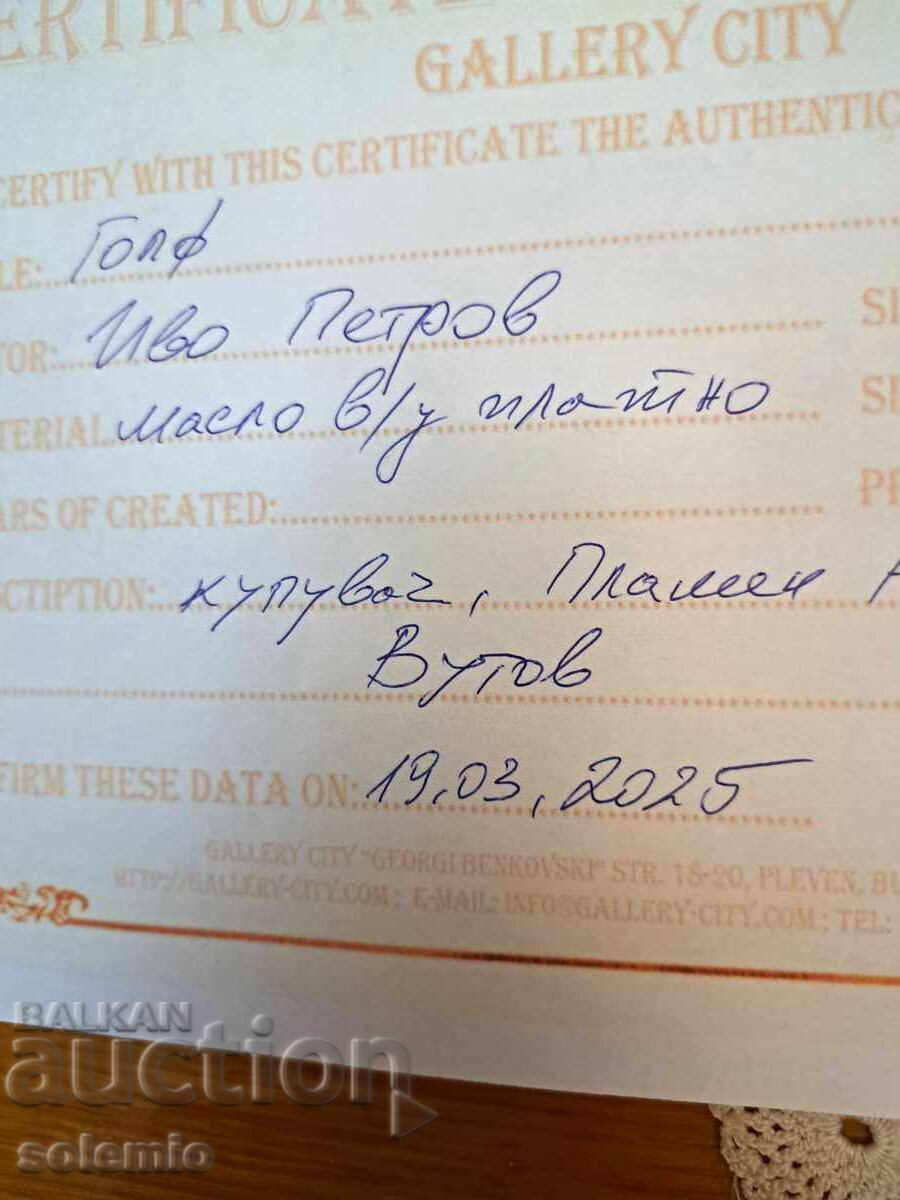 ERTIFICATE
GALLERY CITY
CERTIFY WITH THIS CERTIFICATE THE AUTHENTIC
LE: Голф
TOR: Иво Петров SI
TERIAL: масло в/у платно SI
ARS OF CREATED: PR
SCTIPTION: купувач, Пламен
Вутов
FIRM THESE DATA ON: 19.03.2025
GALLERY CITY "GEORGI BENKOVSKI" STR. 18-20, PLEVEN, BU
HTTP://GALLERY-CITY.COM ; E-MAIL: INFO@GALLERY-CITY.COM ; TEL:
BALKAN
auction
solemio